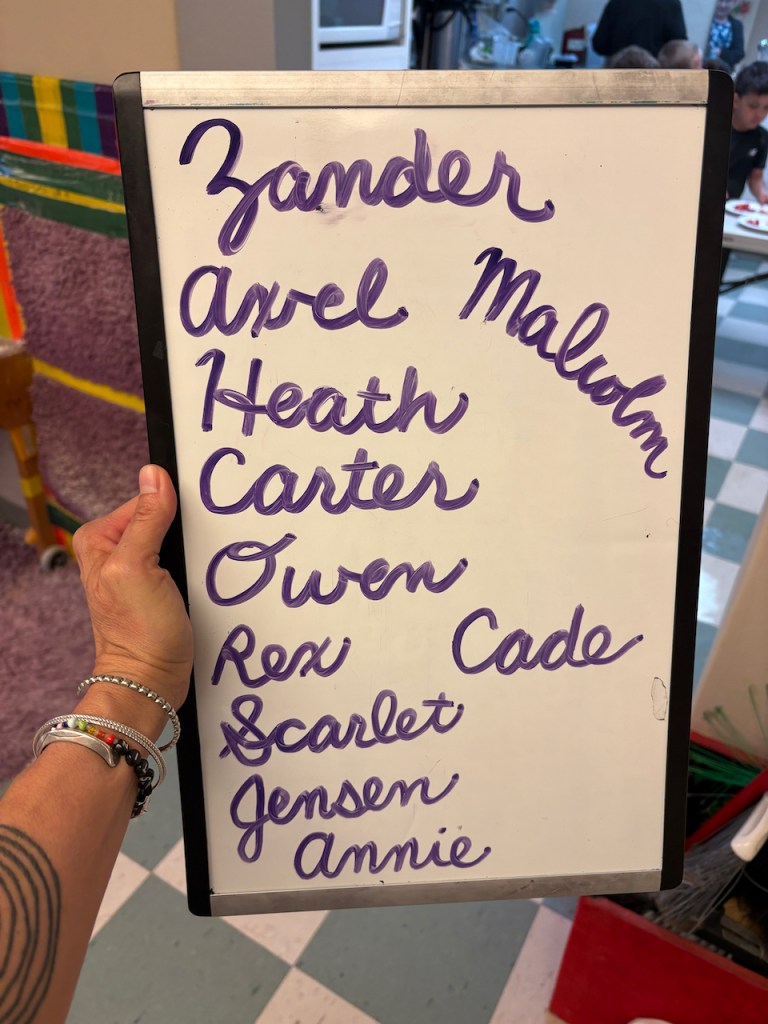 Zander
Axel Malcolm
Heath
Carter
Owen
Rex Cade
Scarlet
Jensen
Annie